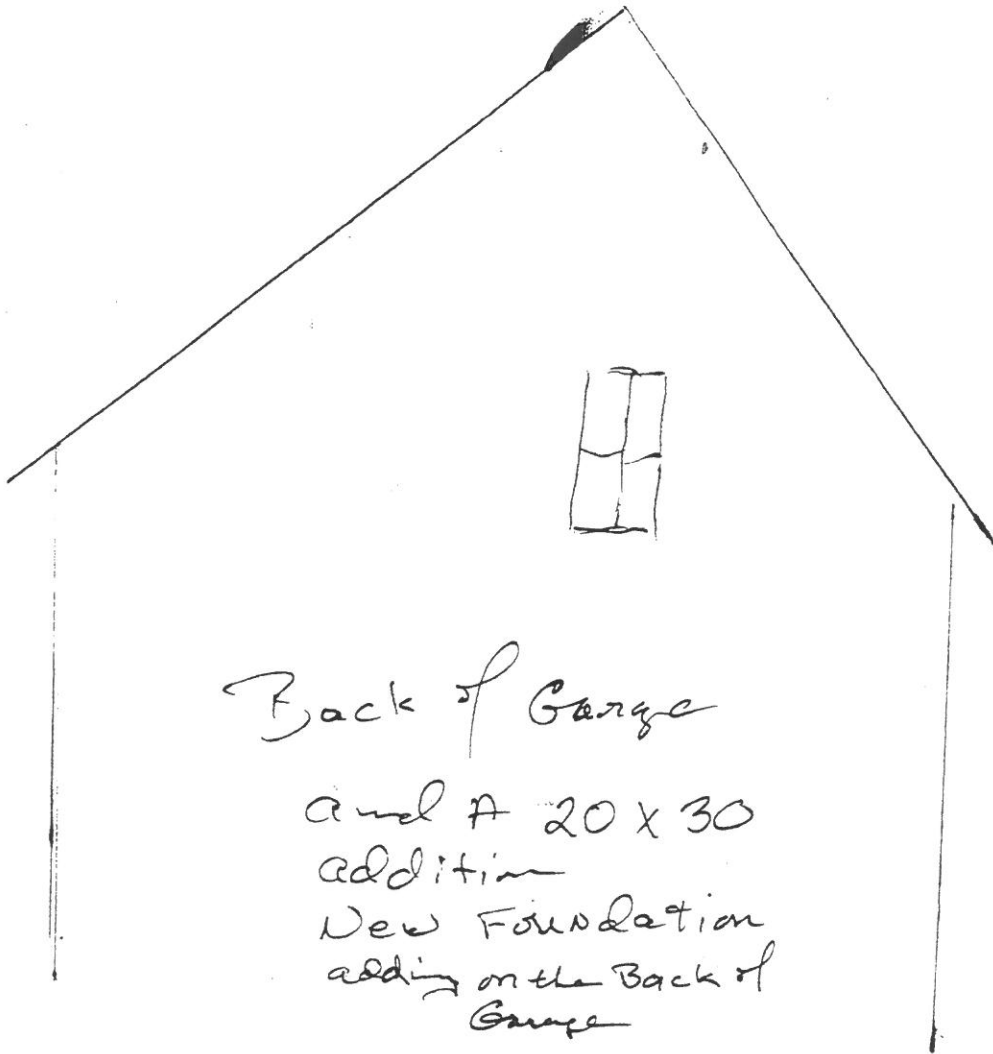 Back of Garage
and A 20 X 30
addition
New Foundation
adding on the Back of
Garage